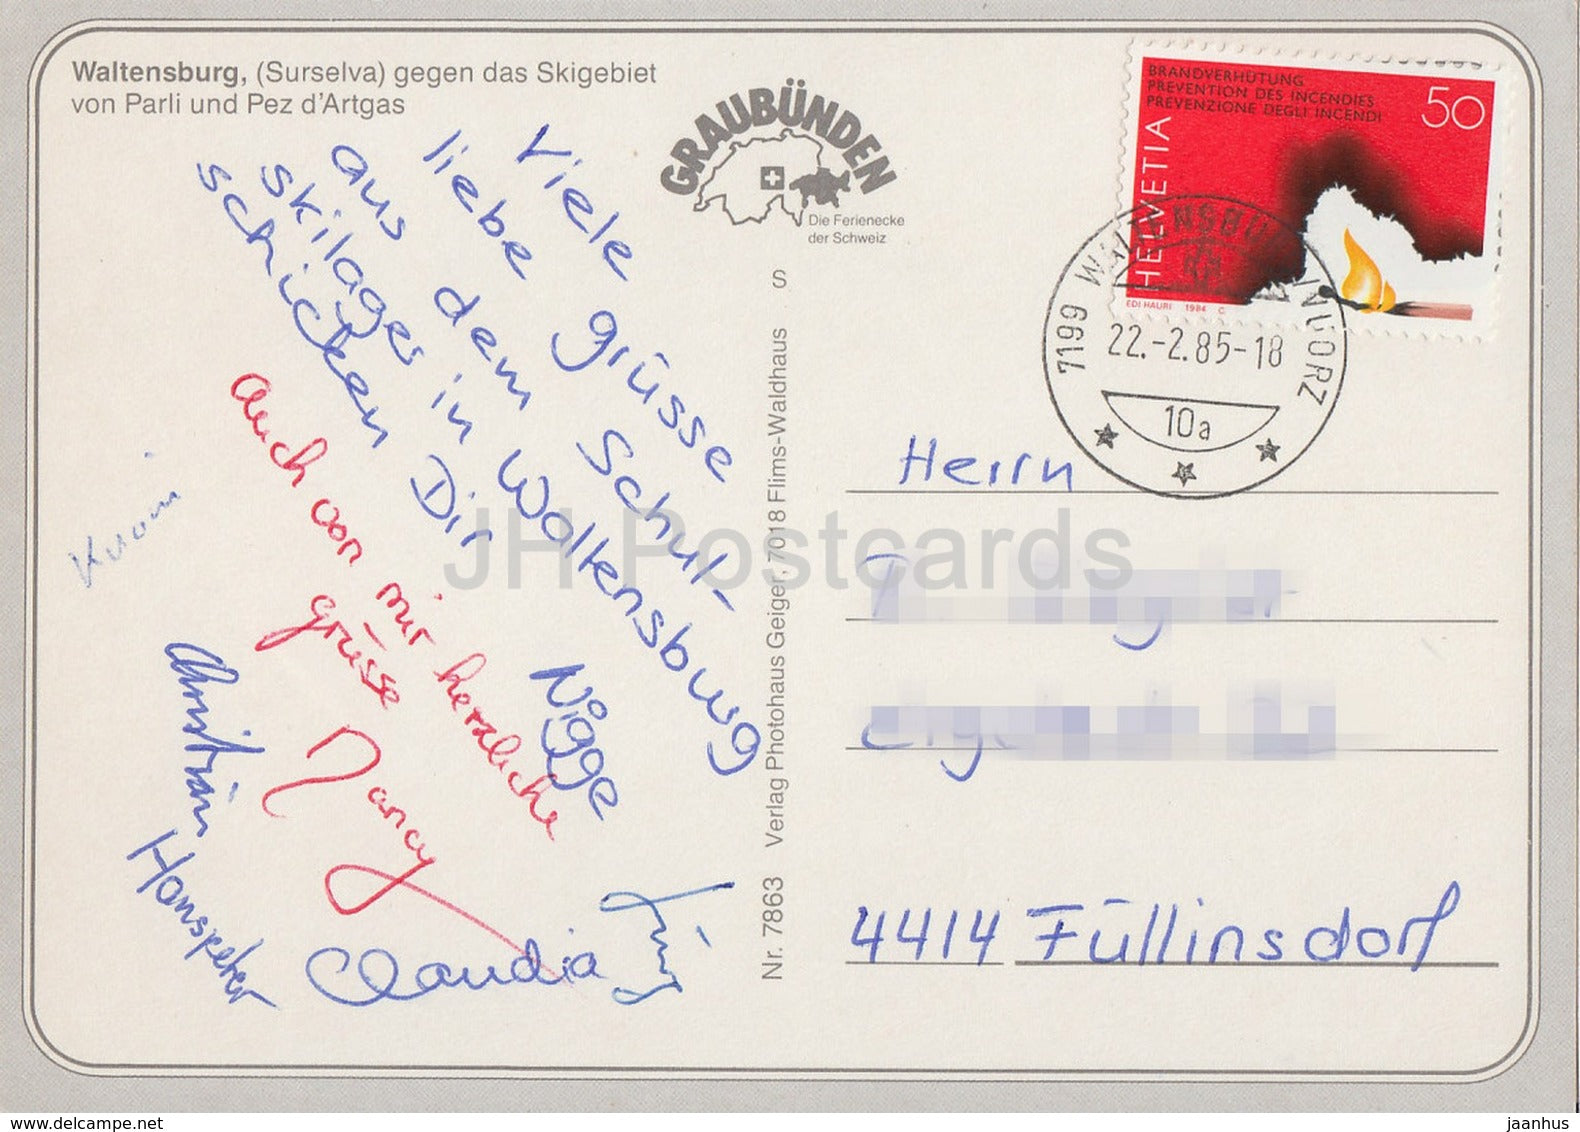 Waltensburg, (Surselva) gegen das Skigebiet
von Parli und Pez d'Artgas
GRAUBÜNDEN
Die Ferienecke
der Schweiz
BRANDVERHÜTUNG
PREVENTION DES INCENDIES
PREVENZIONE DEGLI INCENDI
50
HELVETIA
EDI HAURI 1984 C
7199 WALTENSBURG/VUORZ
22.-2.85-18
10a
Viele grüsse
liebe
aus dem Schul-
skilager in Waltensburg
schicken Dir
Nögge
auch von mir herzliche
grüsse
Nancy
Christian
Hanspeter
Claudia
Jürg
Nr. 7863 Verlag Photohaus Geiger, 7018 Flims-Waldhaus S
Herrn
4414 Füllinsdorf
JH Postcards
www.delcampe.net
jaanhus